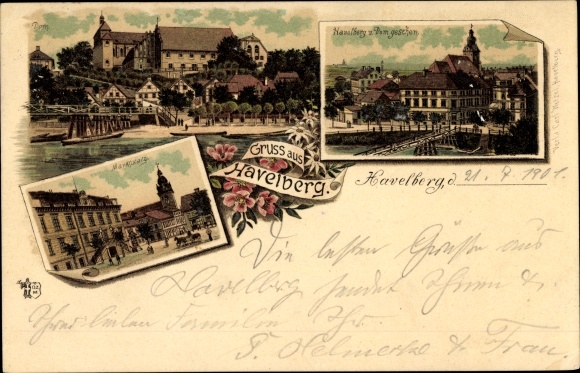 Dom
Havelberg v. Dom gesehen
Marktplatz
Gruss aus
Havelberg.
Havelberg, d. 21. 7. 1901.
Die besten Grüsse aus
Havelberg sendet Ihnen &
Ihrer lieben Familie Ihr
F. Helmecke & Frau